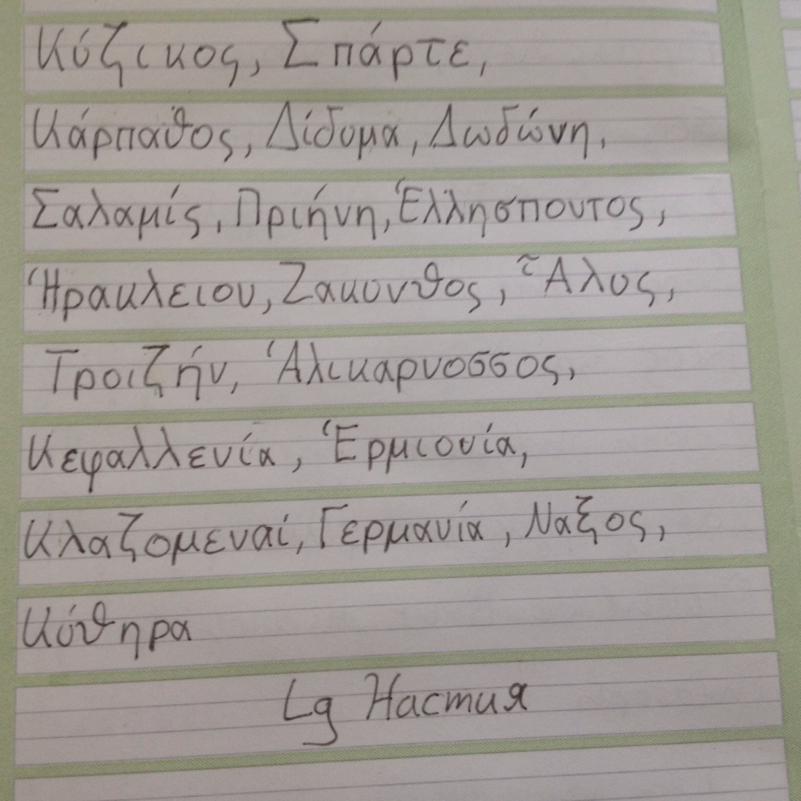 Κύζικος, Σπάρτε,
Κάρπαθος, Δίδυμα, Δωδώνη,
Σαλαμίς, Πριήνη, Ἑλλησπουτος,
Ἡρακλειου, Ζακυνθος, Ἅλυς,
Τροιζήν, Ἁλικαρνοσσος,
Κεφαλλενία, Ἑρμιονία,
Κλαζομεναί, Γερμανία, Ναξος,
Κύθηρα
Lg Настия